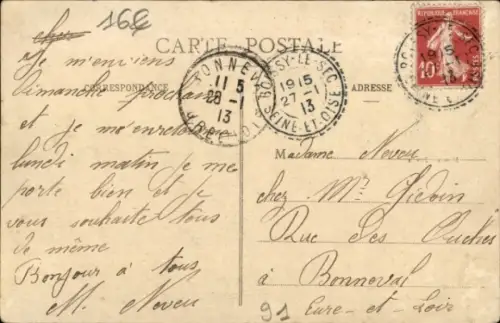 16€
CARTE POSTALE
RÉPUBLIQUE FRANÇAISE
10
CORRESPONDANCE
ADRESSE
BONNEVAL
11 5
28 -1
13
BOISSY-LE-SEC
1915
27 -1
13
SEINE-ET-OISE
Je m'enviens
Dimanche prochain
et je m'en retourne
lundi matin je me
porte bien et je
vous souhaite tous
de même
Bonjour à tous
M. Neveu
Madame Neveu
chez Mr
Rue des
à Bonneval
91 Eure-et-Loir